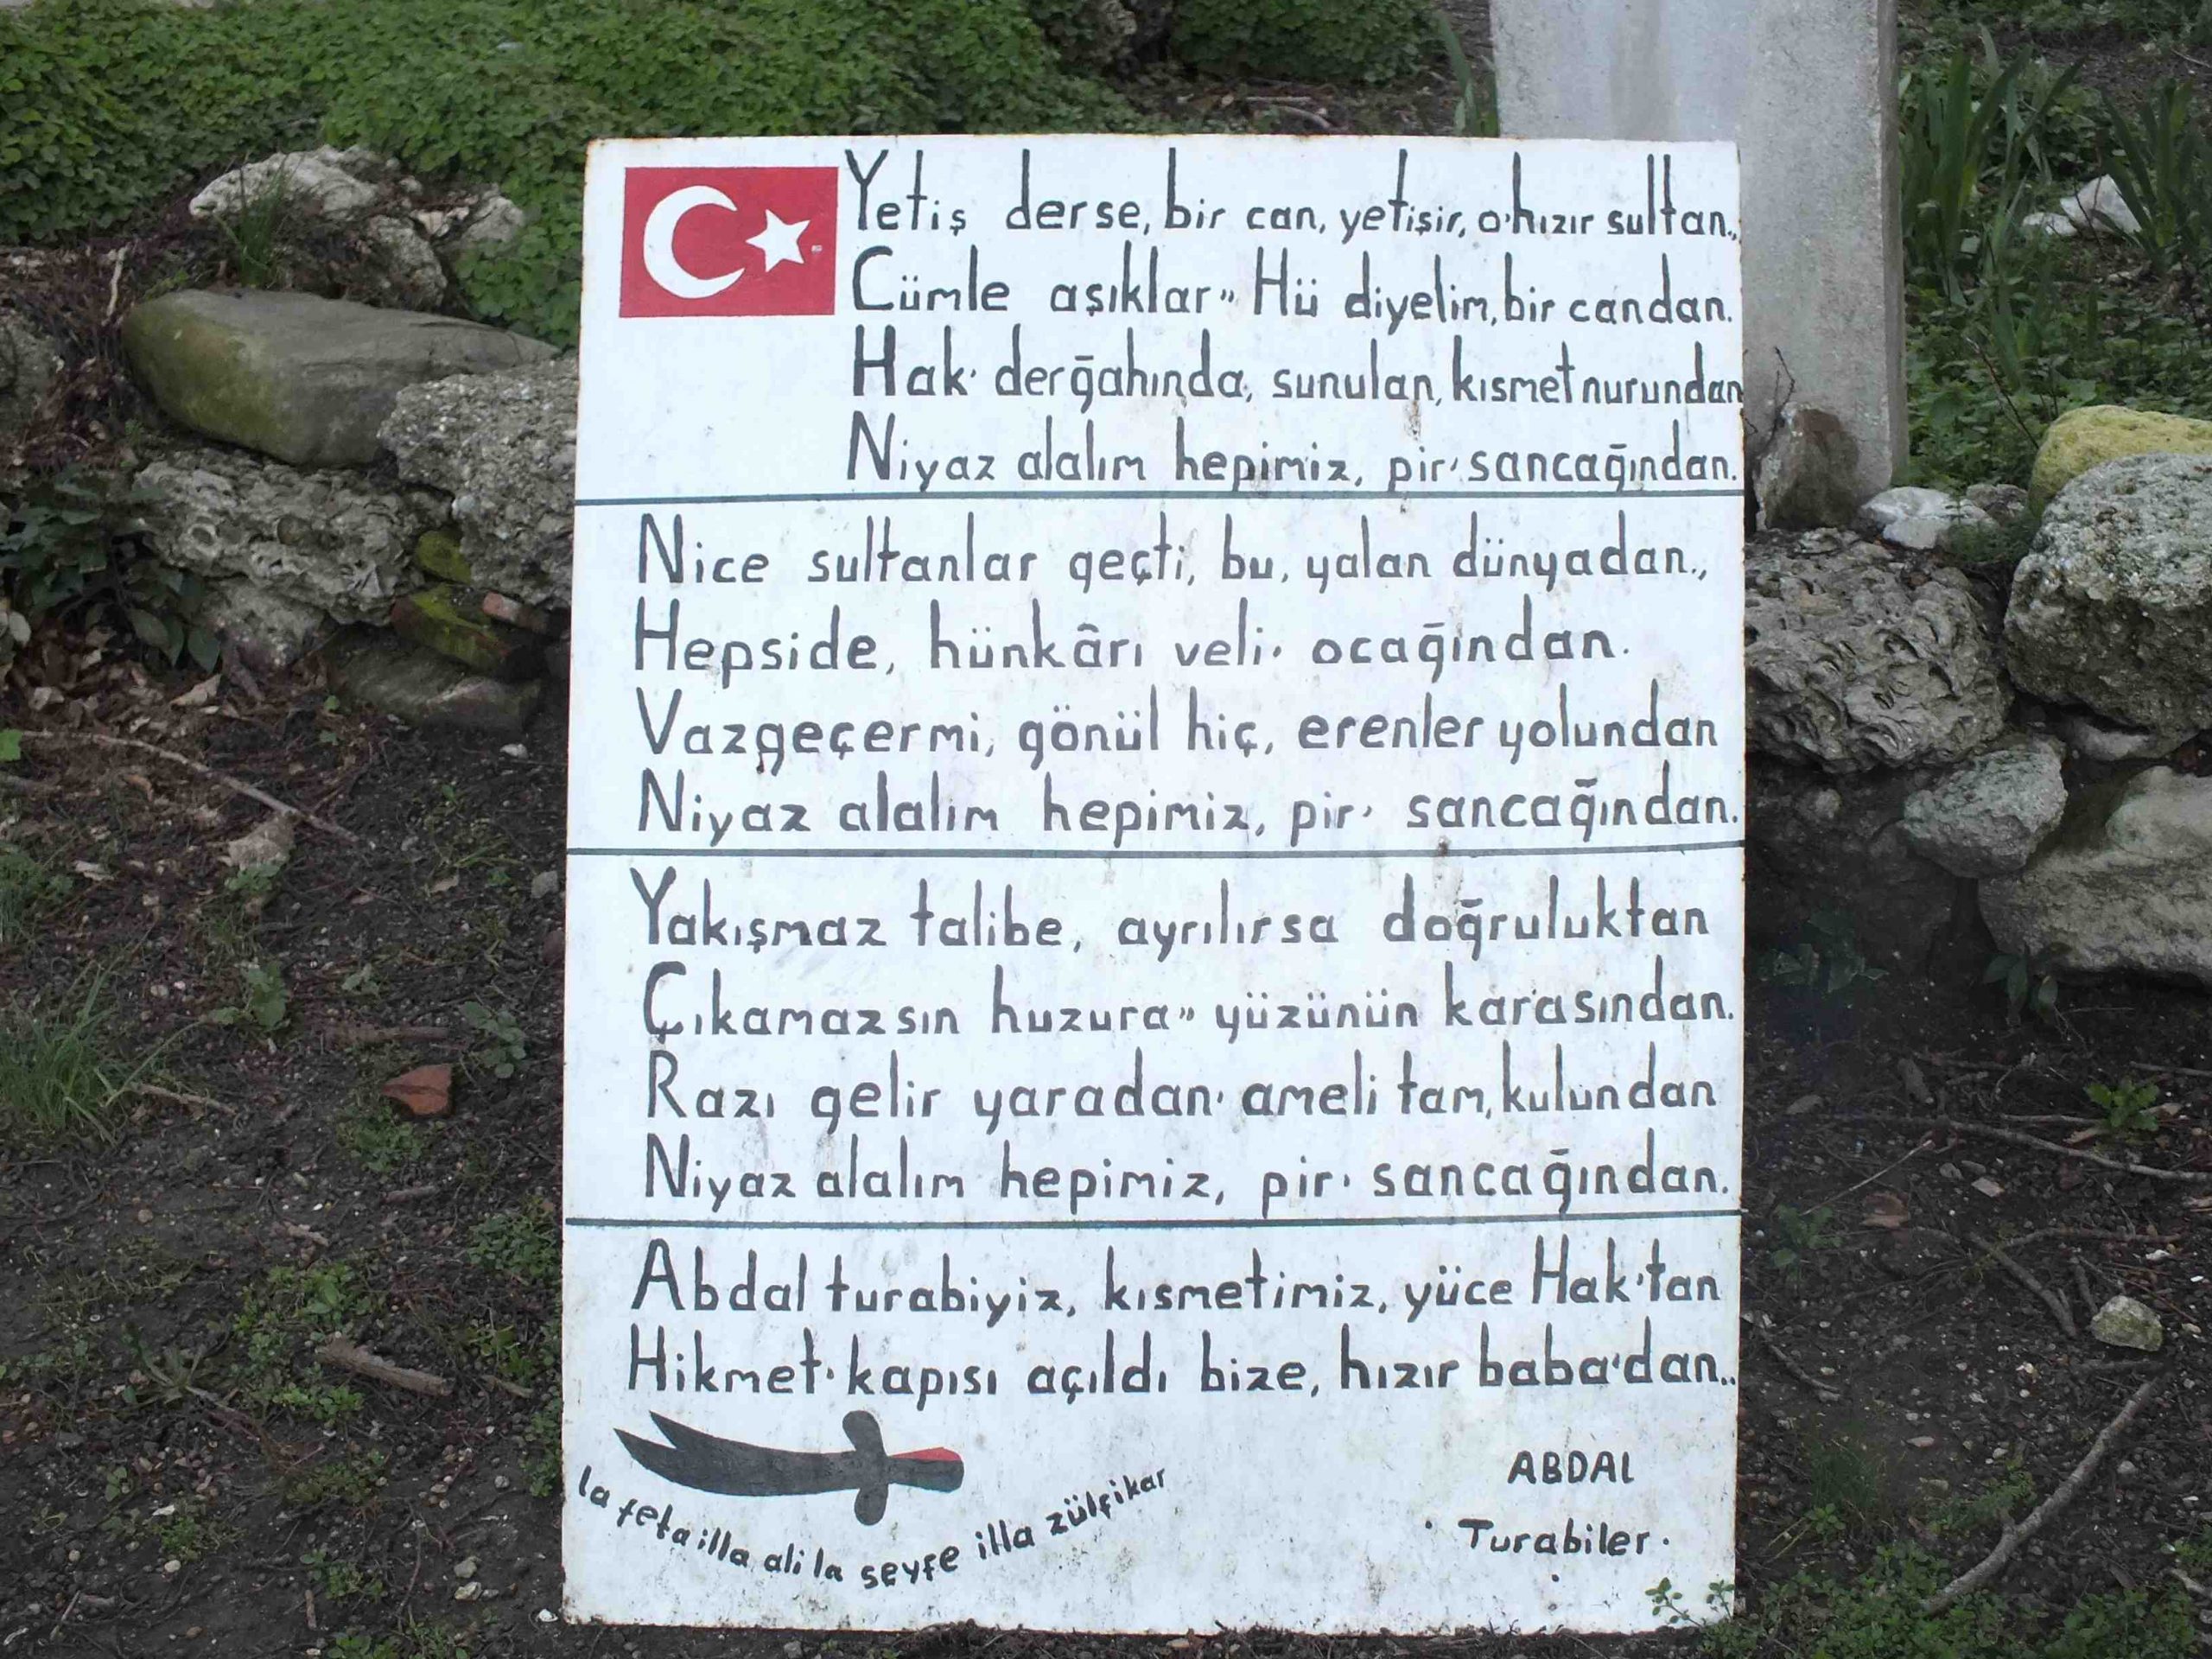 Yetiş derse, bir can, yetişir, o'hızır sultan.,
Cümle aşıklar" Hü diyelim, bir candan.
Hak' derğahında, sunulan, kısmet nurundan
Niyaz alalım hepimiz, pir' sancağından.
Nice sultanlar geçti, bu, yalan dünyadan.,
Hepside, hünkârı veli' ocağından.
Vazgeçermi, gönül hiç, erenler yolundan
Niyaz alalım hepimiz, pir' sancağından.
Yakışmaz talibe, ayrılırsa doğruluktan
Çıkamazsın huzura" yüzünün karasından.
Razı gelir yaradan' ameli tam, kulundan
Niyaz alalım hepimiz, pir' sancağından.
Abdal turabiyiz, kısmetimiz, yüce Hak'tan
Hikmet' kapısı açıldı bize, hızır baba'dan..
la feta illa ali la seyfe illa zülfikar
ABDAL
Turabiler.